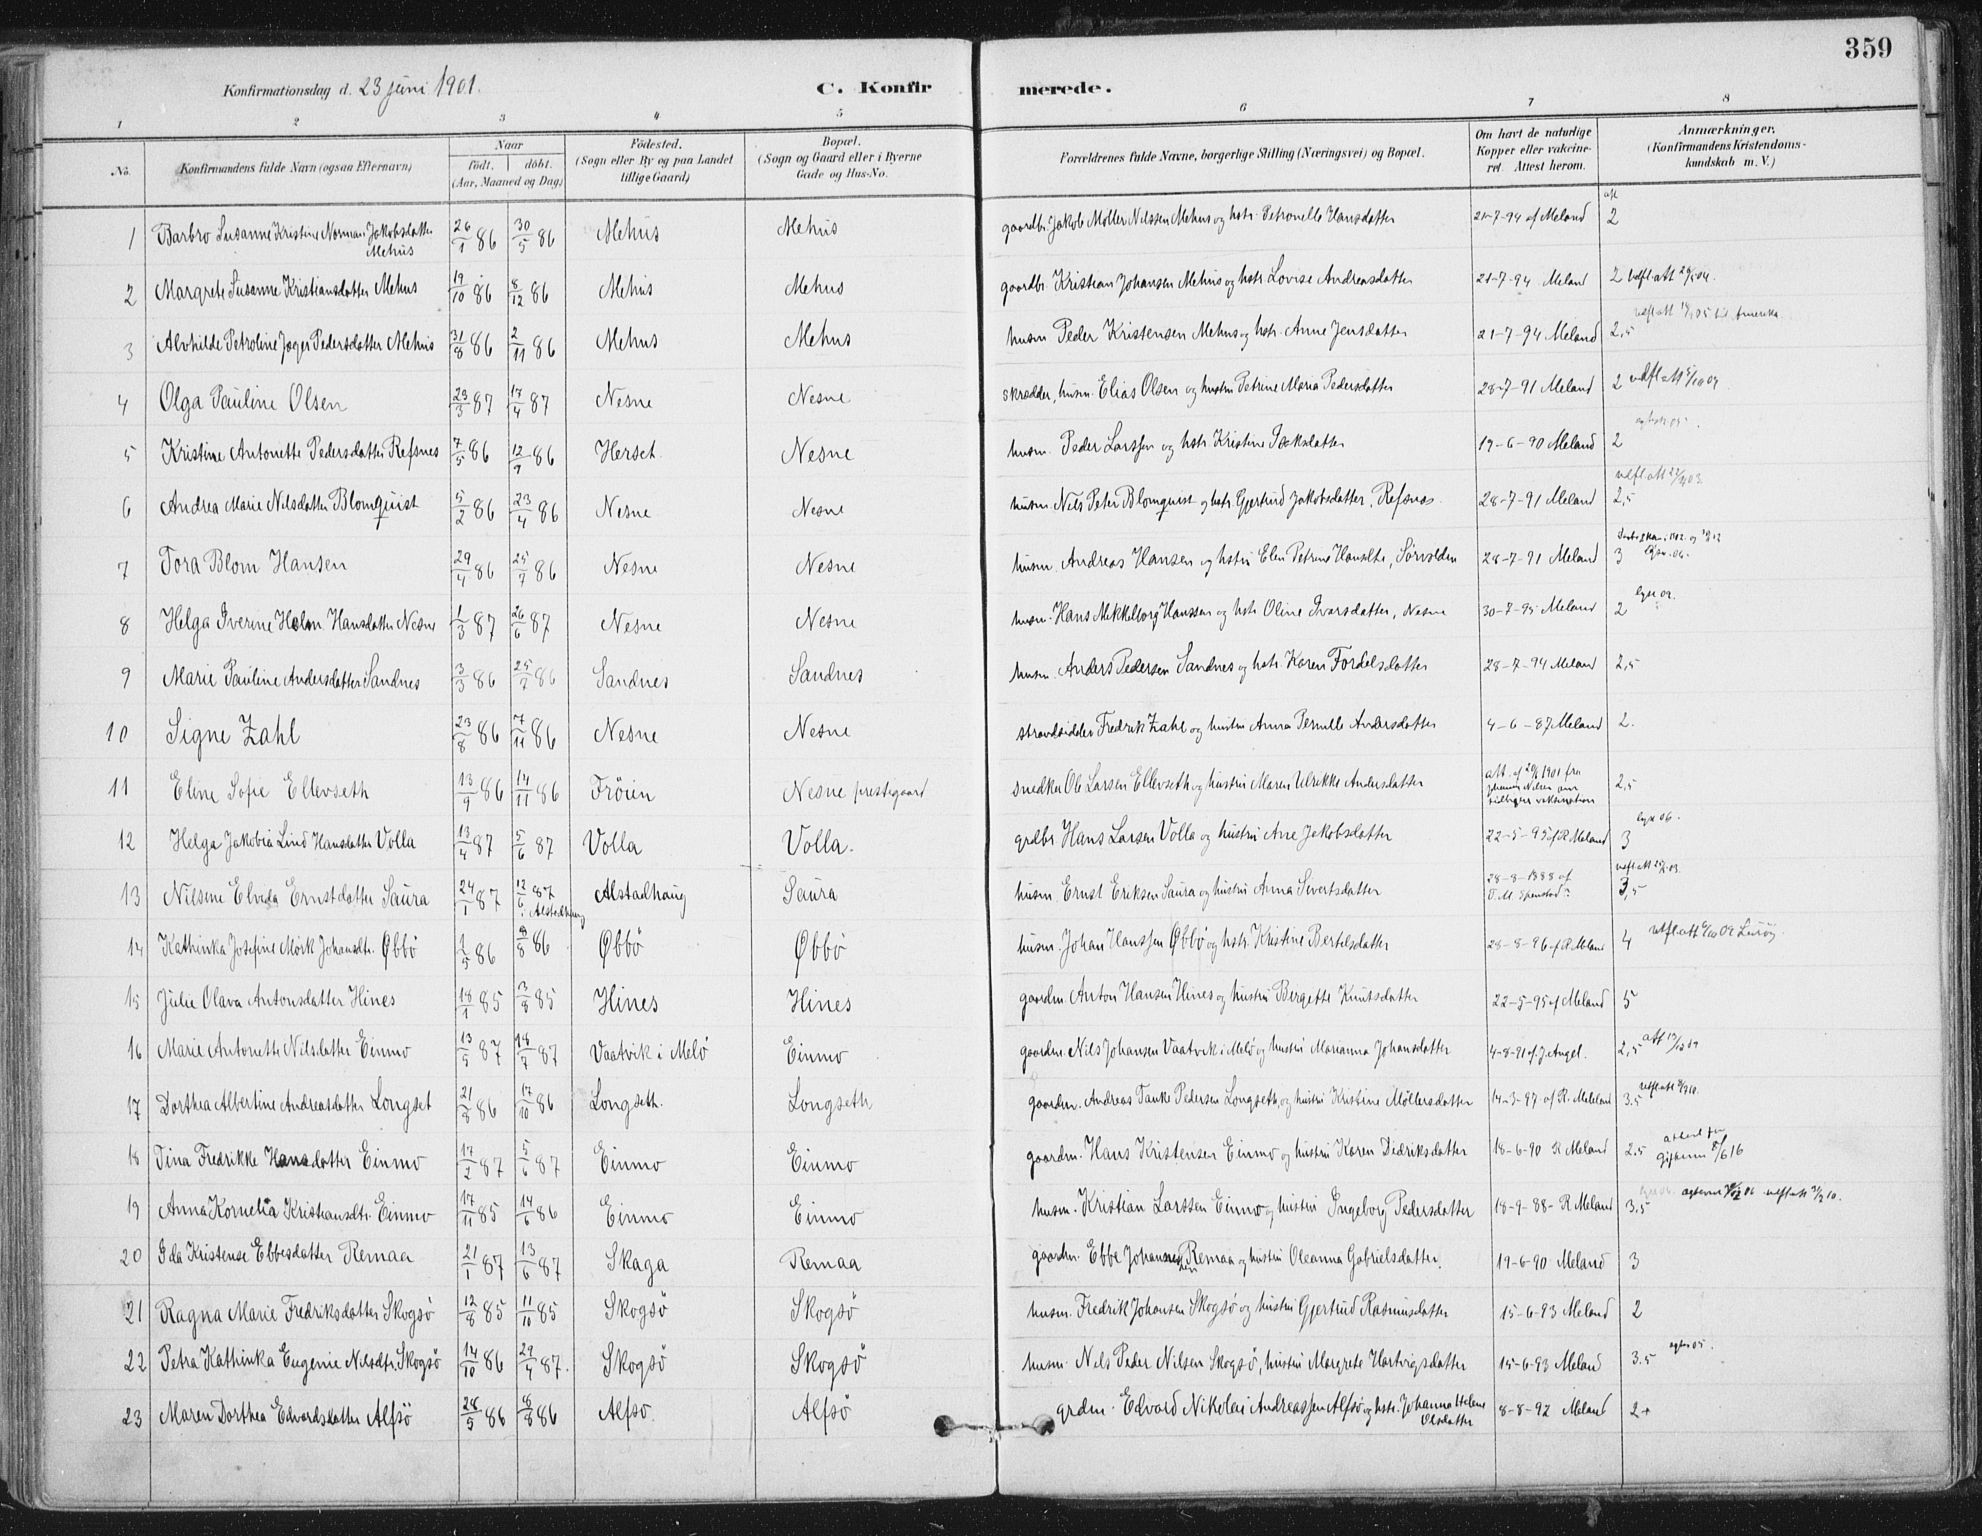 359
Konfirmationsdag d. 23 juni 1901.
C. Konfirmerede.
1 2 3 4 5 6 7 8
No.
Konfirmandens fulde Navn (ogsaa Efternavn)
Naar
født. døbt.
(Aar, Maaned og Dag)
Fødested.
(Sogn eller By og paa Landet
tillige Gaard)
Bopæl.
(Sogn og Gaard eller i Byerne
Gade og Hus-No.
Forældrenes fulde Navne, borgerlige Stilling (Næringsvei) og Bopæl.
Om havt de naturlige
Kopper eller vakcine-
ret. Attest herom.
Anmærkninger.
(Konfirmandens Kristendoms-
kundskab m. V.)
1 Barbro Susanne Kristine Norman Jakobsdatter Mehus 26/1 86 30/5 86 Mehus Mehus gaardbr. Jakob Møller Nilssen Mehus og hstr. Petronelle Hansdatter 21-7-94 af Meland 2
2 Margrete Susanne Kristiansdatter Mehus 19/10 86 8/12 86 Mehus Mehus gaardbr. Kristian Johansen Mehus og hstr. Lovise Andreasdatter 21-7-94 Meland 2
3 Alvhilde Petroline Jager Pedersdatter Mehus 31/8 86 2/11 86 Mehus Mehus husm. Peder Kristensen Mehus og hstr. Anne Jensdatter 21-7-94 Meland 2,5 til Amerika
4 Olga Pauline Olsen 23/3 87 17/4 87 Nesne Nesne skrædder, husm. Elias Olsen og hustru Petrine Maria Pedersdatter 28-7-91 Meland 2
5 Kristine Antonette Pedersdatter Refsnes 7/5 86 12/9 86 Herset Nesne husm. Peder Larssen og hstr. Kristine 19-6-90 Meland 2
6 Andrea Marie Nilsdatter Blomquist 5/2 86 23/4 86 Nesne Nesne husm. Nils Peter Blomquist og hstr. Gjertrud Jakobsdatter, Refsnæs. 28-7-91 Meland 2,5
7 Tora Blom Hansen 29/4 86 25/7 86 Nesne Nesne husm. Andreas Hansen og hstru Elen Petrine 28-7-91 Meland 3
8 Helga Iverine Holm Hansdatter Nesne 1/3 87 26/6 87 Nesne Nesne husm. Hans Mekkelborg Hanssen og hstr. Oline Ivarsdatter, Nesne 30-7-95 Meland 2
9 Marie Pauline Andersdatter Sandnes 3/3 86 25/7 86 Sandnes Sandnes husm. Anders Pedersen Sandnes og hstr. Karen Fordelsdatter 28-7-94 Meland 2,5
10 Signe Zahl 23/8 86 7/11 86 Nesne Nesne strandsidder Fredrik Zahl og hustru Anna Pernille Andersdatter 4-6-87 Meland 2.
11 Eline Sofie Ellevseth 13/9 86 14/11 86 Frøien Nesne prestegaard snedker Ole Larsen Ellevseth og hustru Maren Ulrikke Andersdatter att. af 20/6 1901 fra Johannes Nilsen om tidligere vaksination 2,5
12 Helga Jakobia Lind Hansdatter Volla 13/4 87 5/6 87 Volla Volla. grdbr. Hans Larsen Volla og hustru Ane Jakobsdatter 22-5-95 af R Meland 3
13 Nilsine Elvida Ernstdatter Saura 24/1 87 12/6 87 i Alstadhaug Alstadhaug Saura husm. Ernst Eriksen Saura og hustru Anna Sivertsdatter 28-8-1888 af 3,5
14 Kathinka Josefine Mørk Johansdtr. Øbbø 1/5 86 8/8 86 Øbbø Øbbø husm. Johan Hanssen Øbbø og hstr. Kristine Bertelsdatter 28-8-96 af R. Meland 4
15 Julie Olava Antonsdatter Hines 18/1 85 3/8 85 Hines Hines gaardm. Anton Hansen Hines og hustru Bergette Knutsdatter 22-5-95 af Meland 5
16 Marie Antonette Nilsdatter Einmo 13/5 87 18/7 87 Vaatvik i Melø Einmo gaardm. Nils Johansen Vaatvik i Melø og hustru Marianna Johansdatter 4-8-91 af J. Angel. 2,5
17 Dorthea Albertine Andreasdatter Longset 21/8 86 17/10 86 Longseth. Longseth gaardm. Andreas Tanke Pedersen Longseth, og hustru Kristine Møllersdatter 14-3-97 af R. Meland 3.5
18 Tina Fredrikke Hansdatter Einmo 17/2 87 5/6 87 Einmo Einmo gaardm. Hans Kristensen Einmo og hustru Karen Didriksdatter 18-6-90 R Meland 2.5
19 Anna Kornelia Kristiansdtr. Einmo 17/11 85 14/6 86 Einmo Einmo husm. Kristian Larssen Einmo og hustru Ingeborg Pedersdatter 18-9-88- R Meland 3.5
20 Ida Kristense Ebbesdatter Remaa 21/1 87 13/6 87 Skaga Remaa gaardm. Ebbe Johansen Remaa og hustru Oleanna Gabrielsdatter. 19-6-90 Meland 3
21 Ragna Marie Fredriksdatter Skogsø 12/8 85 11/10 85 Skogsø Skogsø husm. Fredrik Johansen Skogsø og hustru Gjertrud Rasmusdatter 15-6-93 Meland 2
22 Petra Kathinka Eugenie Nilsdtr. Skogsø 14/10 86 29/4 87. Skogsø Skogsø husm. Nils Peder Nilsen Skogsø, hustru Margrete Hartvigsdatter 15-6-93 Meland 3.5
23 Maren Dorthea Edvardsdatter Alfsø 28/5 86 8/8 86 Alfsø. Alfsø grdm. Edvard Nikolai Andreassen Alfsø og hstr. Johanna Helene Olsdatter 8-8-92 Meland 2+